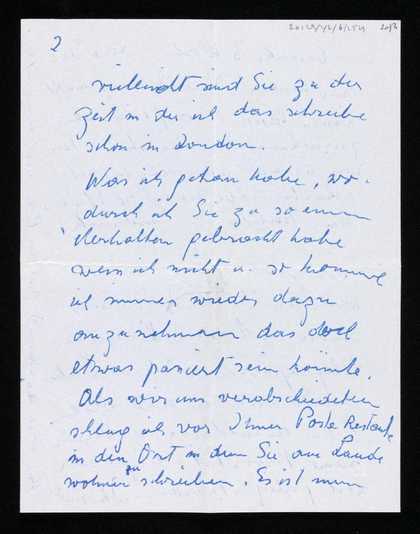 2
vielleicht sind Sie zu der
Zeit in der ich das schreibe
schon in London.
Was ich getan habe, wo-
durch ich Sie zu so einem
Verhalten gebracht habe
weiss ich nicht u. so komme
ich immer wieder dazu
anzunehmen das doch
etwas passiert sein könnte.
Als wir uns verabschiedeten
schlug ich vor Ihnen Poste Restante
in den Ort in dem Sie am Lande
wohnen zu schreiben. Es ist nun